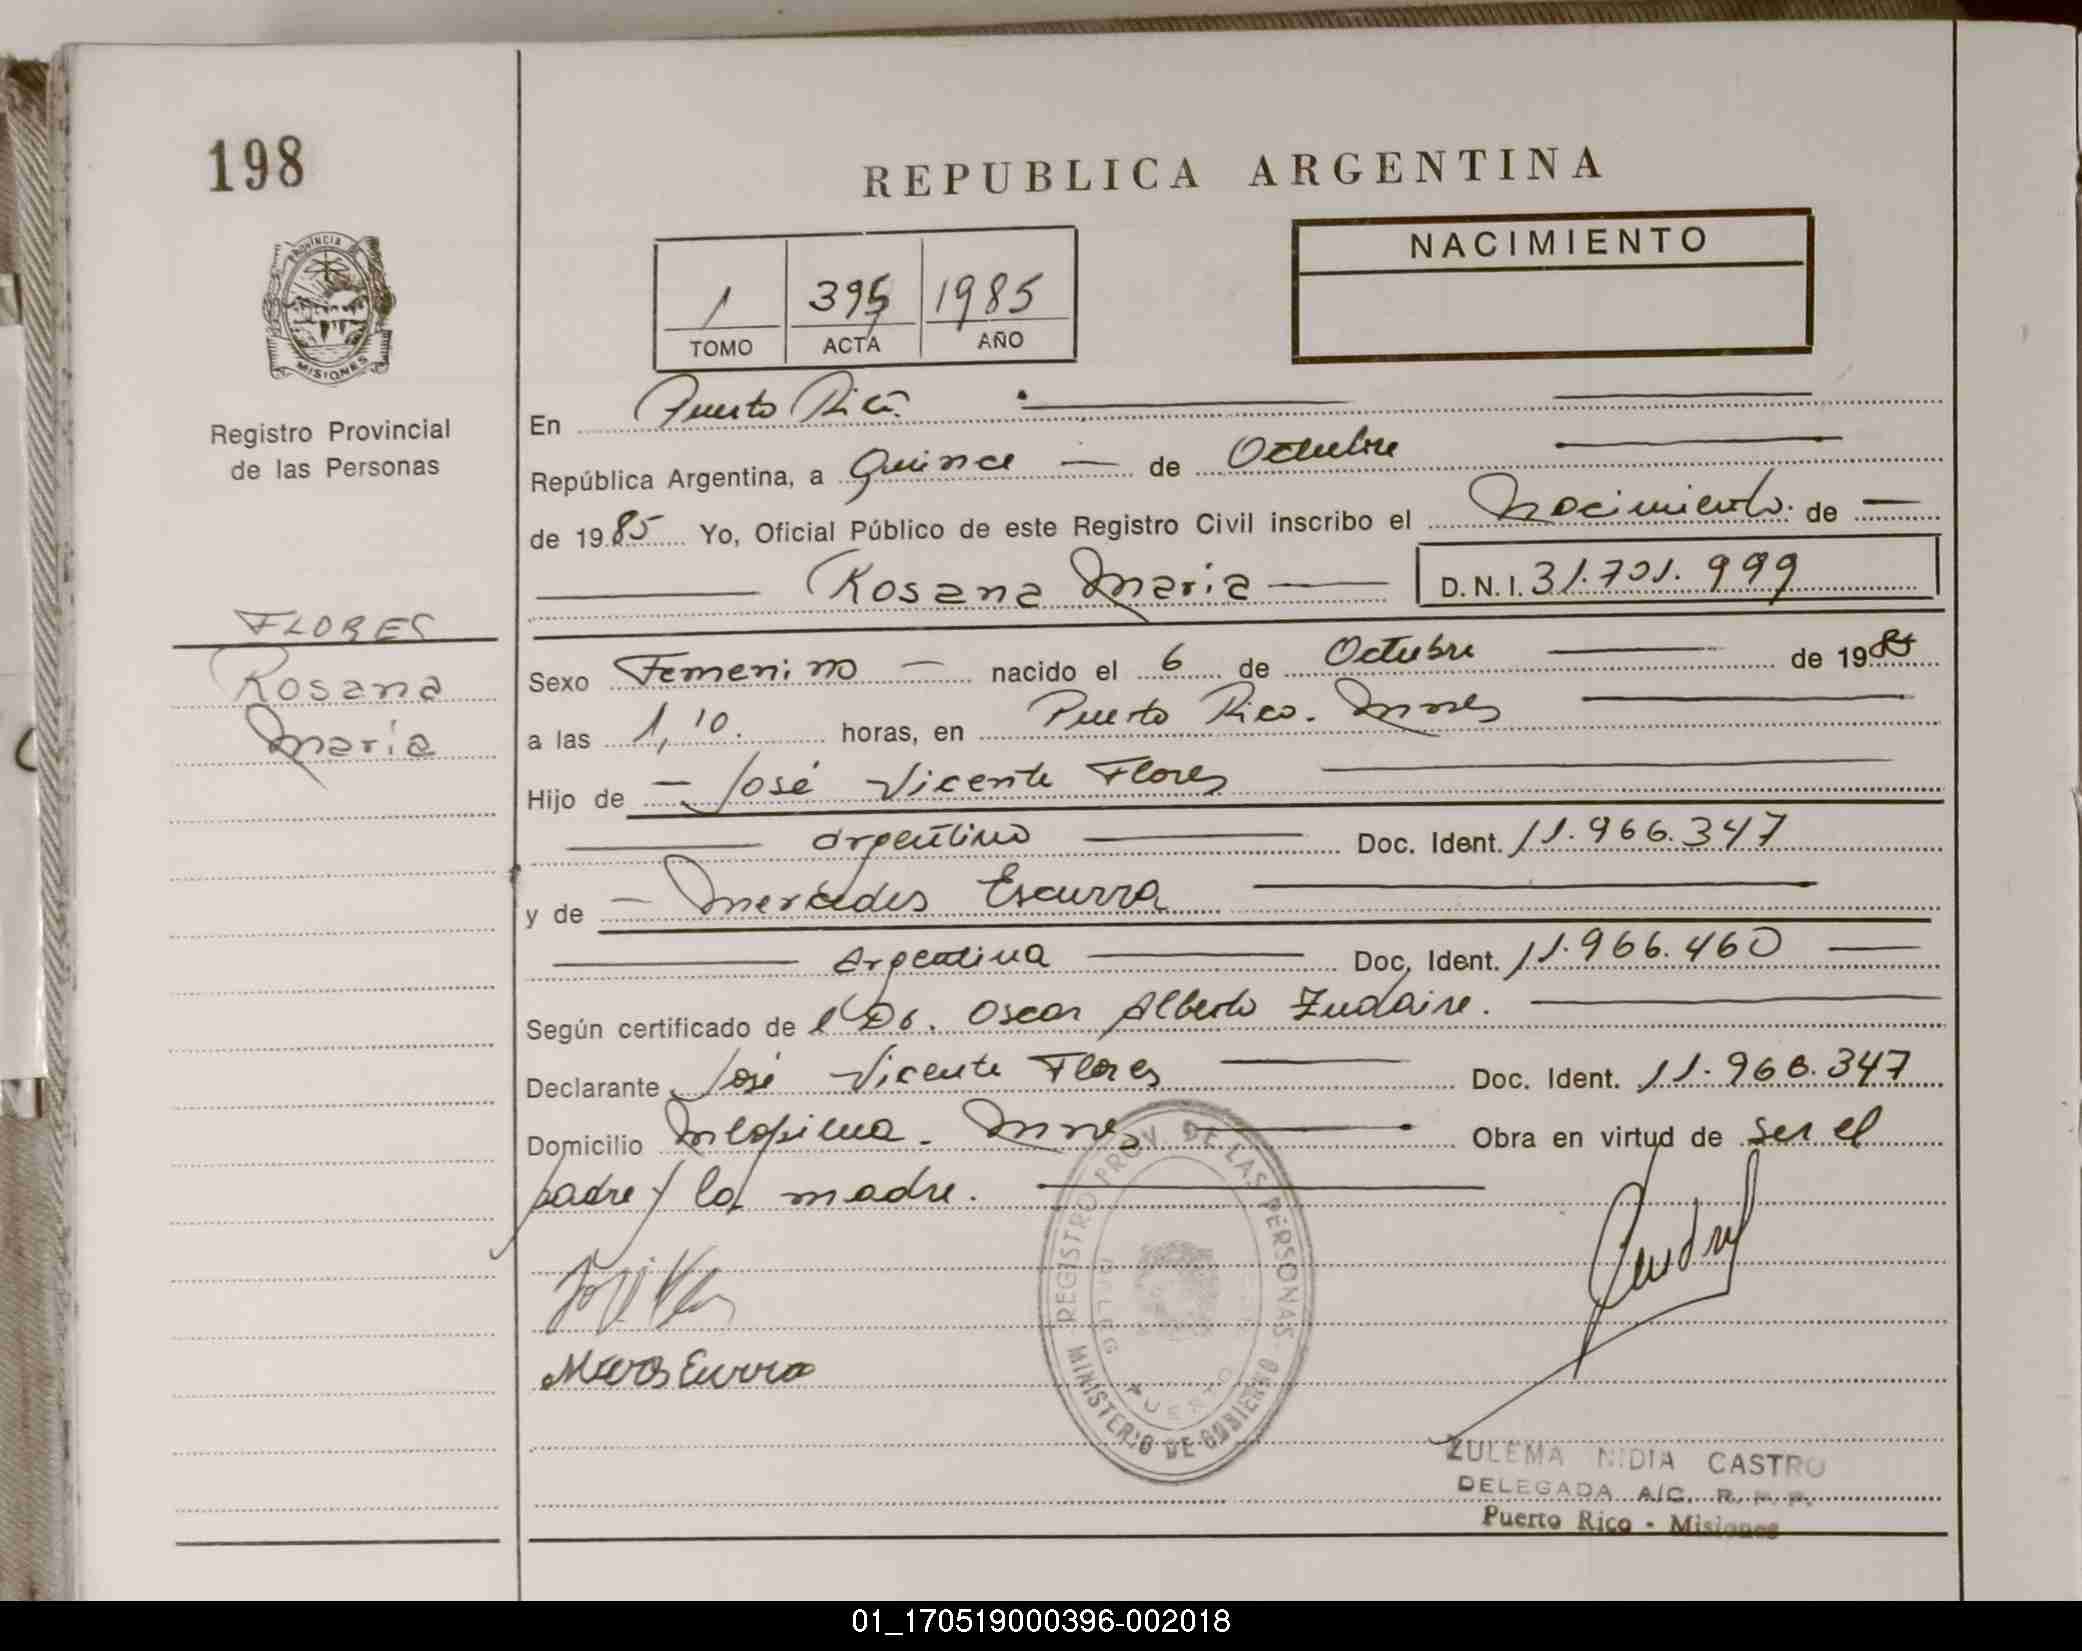 198
REPUBLICA ARGENTINA
PROVINCIA
MISIONES
NACIMIENTO
1 395 1985
TOMO ACTA AÑO
Registro Provincial
de las Personas
En Puerto Rico
República Argentina, a Quince de Octubre
de 1985 Yo, Oficial Público de este Registro Civil inscribo el Nacimiento de
Rosana Maria D.N.I. 31.701.999
FLORES
Rosana
Maria
Sexo Femenino nacido el 6 de Octubre de 1985
a las 1,10. horas, en Puerto Rico. Mnes
Hijo de José Vicente Flores
argentino Doc. Ident. 11.966.347
y de Mercedes Escurra
Argentina Doc. Ident. 11.966.460
Según certificado de l Dr. Oscar Alberto Zudaire.
Declarante José Vicente Flores Doc. Ident. 11.966.347
Domicilio Mnes Obra en virtud de ser el
padre y la madre.
REGISTRO PROV. DE LAS PERSONAS
MINISTERIO DE GOBIERNO
PUERTO
ZULEMA NIDIA CASTRO
DELEGADA A/C. R. P. P.
Puerto Rico - Misiones
01_170519000396-002018